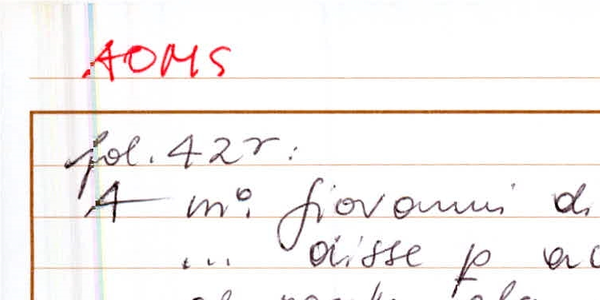 AOMS
fol. 42r:
A mº. Giovanni di
... disse p